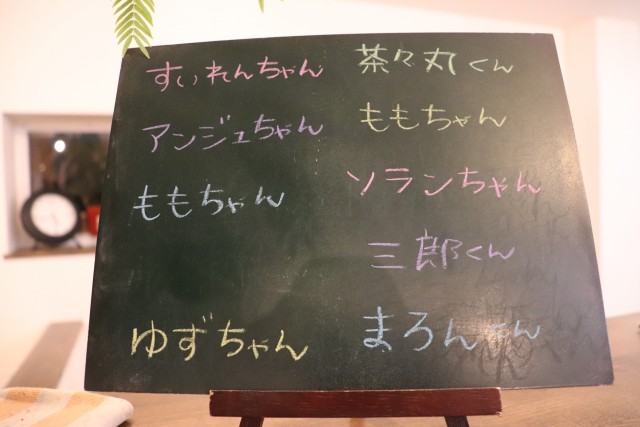 すいれんちゃん
アンジュちゃん
ももちゃん
ゆずちゃん
茶々丸くん
ももちゃん
ソランちゃん
三郎くん
まろんくん